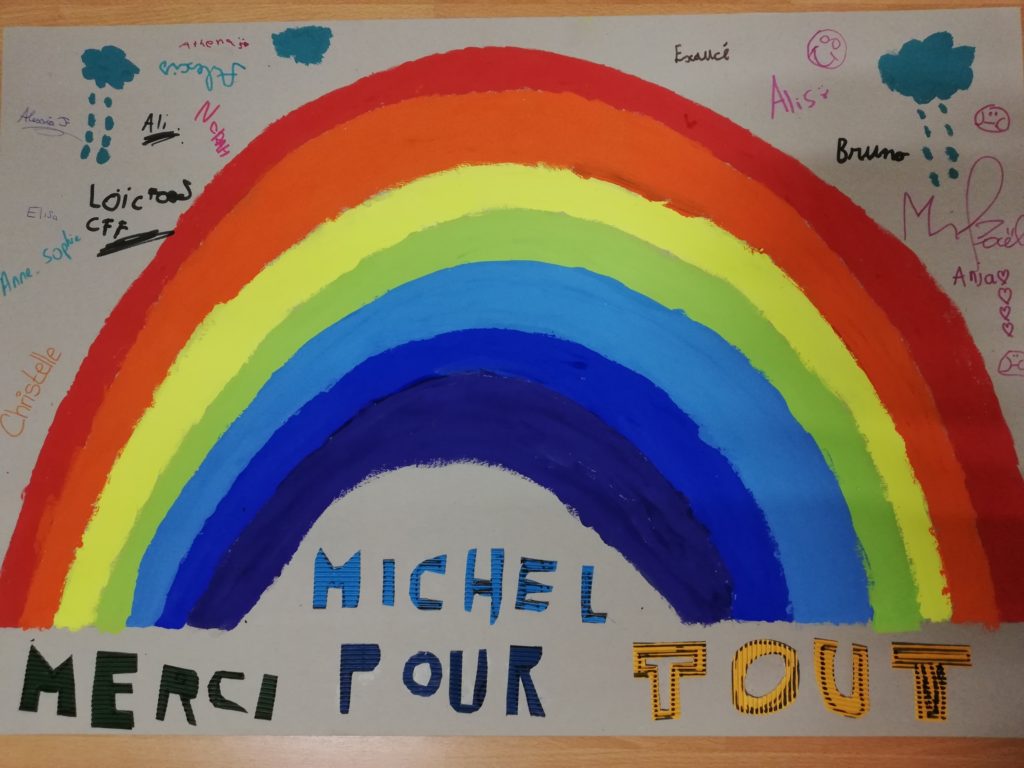 Athena
Alexis
Alessia J.
Ali.
Norah
Loïc
CFF
Elisa
Anne-Sophie
Christelle
Exaucé
Alis
Bruno
Anja
MICHEL
MERCI POUR TOUT